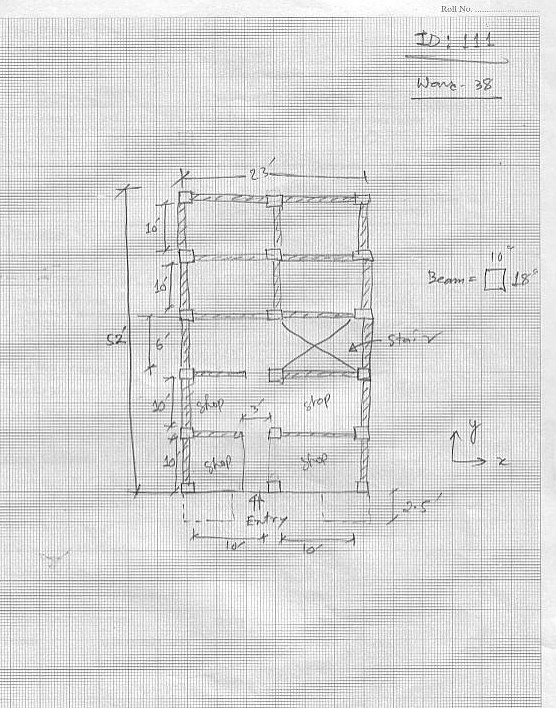 Roll No. ..............................
ID: 111
Ward - 38
23'
10'
10'
10"
Beam = 18"
52'
6'
Stair
10'
shop
3'
shop
10
shop
shop
y
x
Entry
2.5'
10'
10'